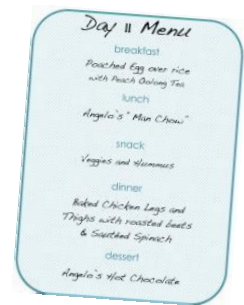 Day 11 Menu
breakfast
Poached Egg over rice
with Peach Oolong Tea
lunch
Angelo's "Man Chow"
snack
Veggies and Hummus
dinner
Baked Chicken Legs and
Thighs with roasted beets
& Sautéed Spinach
dessert
Angelo's Hot Chocolate